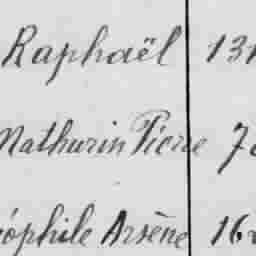 Raphaël 131
Mathurin Pierre 7
éophile Arsène 16